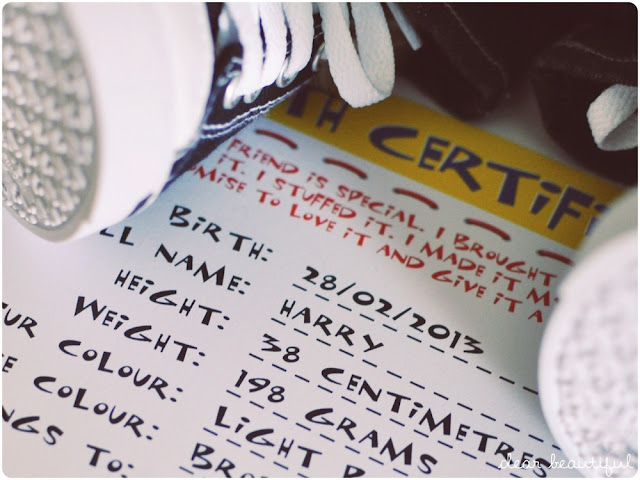 TH CERTIFI
FRIEND IS SPECIAL. I BROUGHT
IT. I STUFFED IT. I MADE IT M
MISE TO LOVE IT AND GIVE IT A
BIRTH: 28/02/2013
LL NAME: HARRY
HEIGHT: 38 CENTIMETRES
WEIGHT: 198 GRAMS
UR COLOUR: LIGHT
E COLOUR: BRO
NGS TO:
dear beautiful